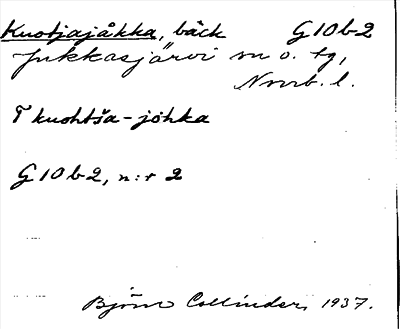 Kuotjajåkka, bäck G10b-2
Jukkasjärvi sn o. tg,
Norrb. l.
T kuohtša-johka
G10b-2, n:r 2
Björn Collinder, 1937.